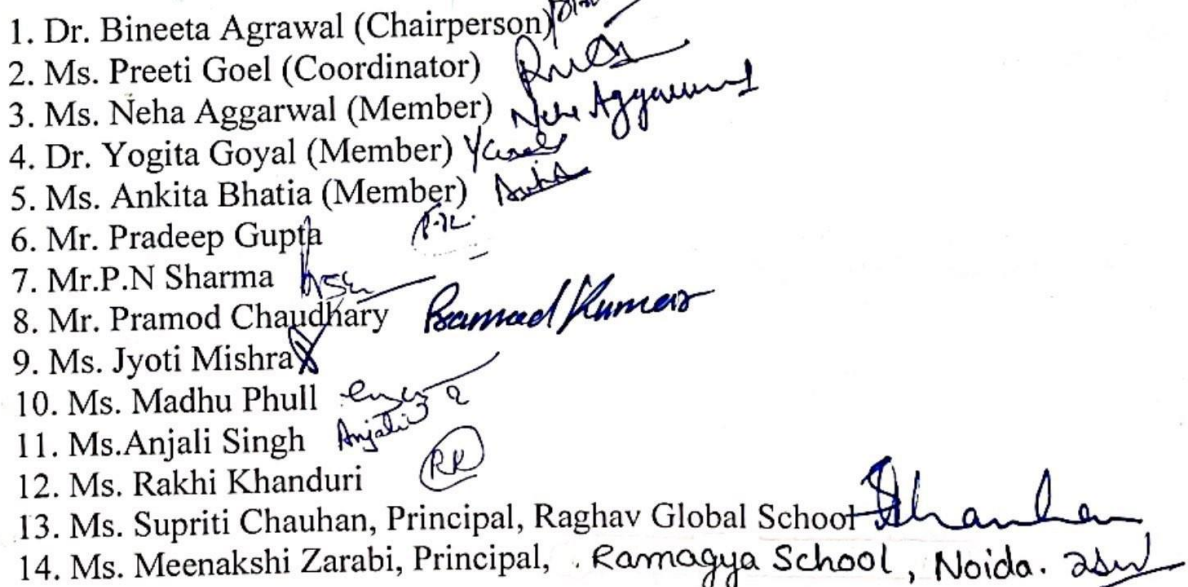 1. Dr. Bineeta Agrawal (Chairperson)
2. Ms. Preeti Goel (Coordinator)
3. Ms. Neha Aggarwal (Member) Neha Aggarwal
4. Dr. Yogita Goyal (Member)
5. Ms. Ankita Bhatia (Member)
6. Mr. Pradeep Gupta
7. Mr.P.N Sharma
8. Mr. Pramod Chaudhary Pramod Kumar
9. Ms. Jyoti Mishra
10. Ms. Madhu Phull
11. Ms.Anjali Singh Anjali
12. Ms. Rakhi Khanduri RK
13. Ms. Supriti Chauhan, Principal, Raghav Global School
14. Ms. Meenakshi Zarabi, Principal, Ramagya School, Noida.